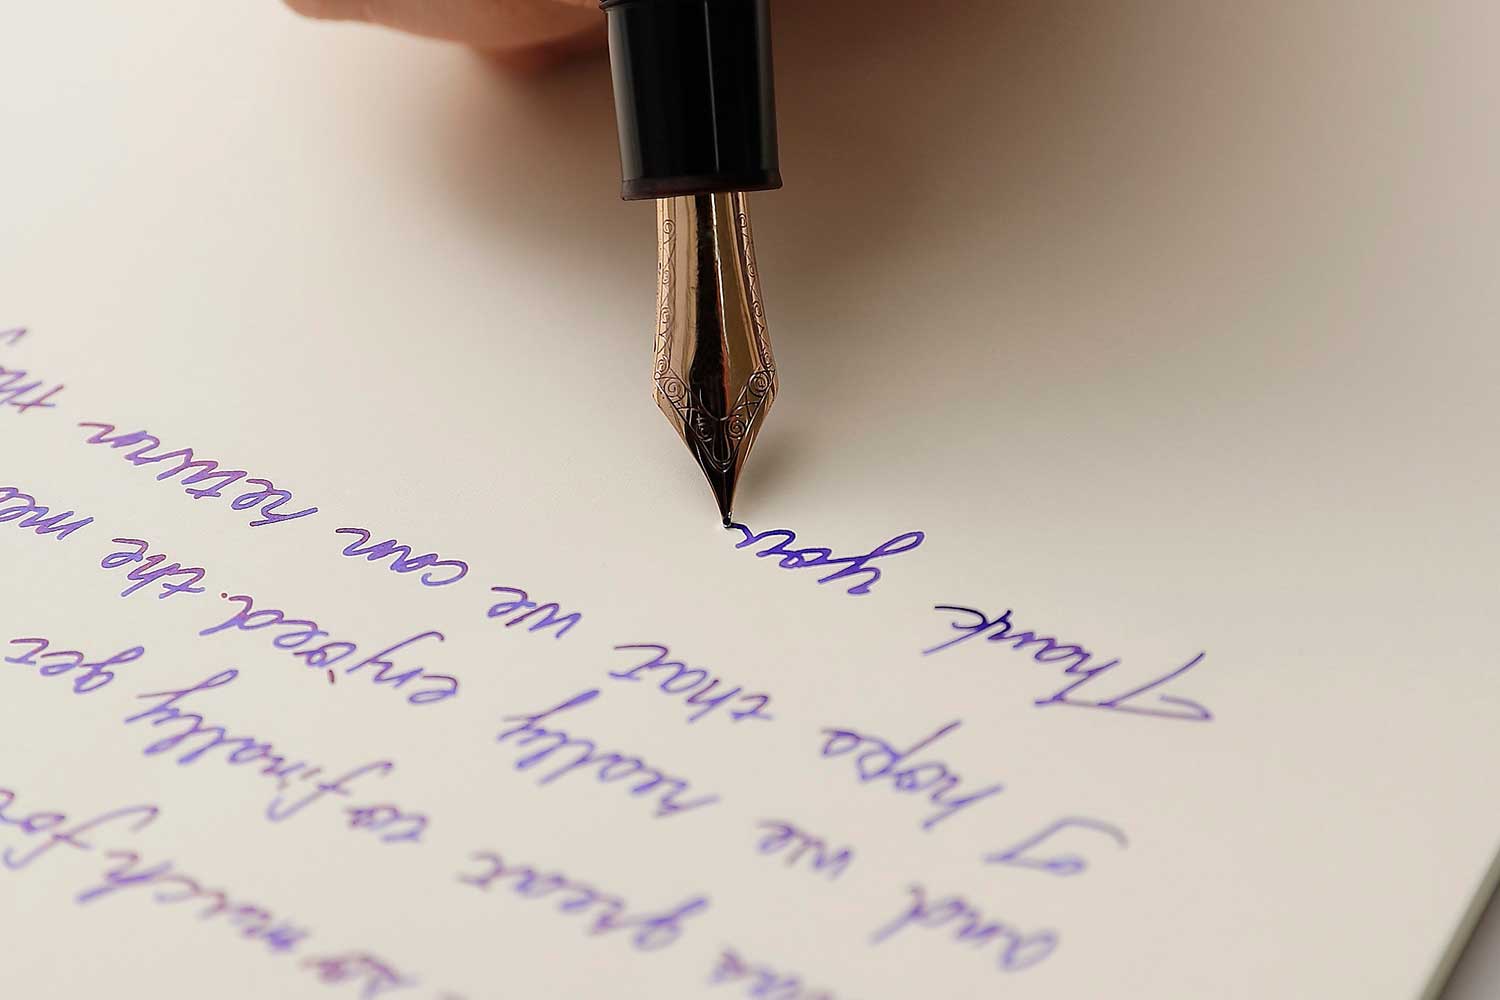 so much for
was great to finally get
and we really enjoyed. the
I hope that we can return
Thank you